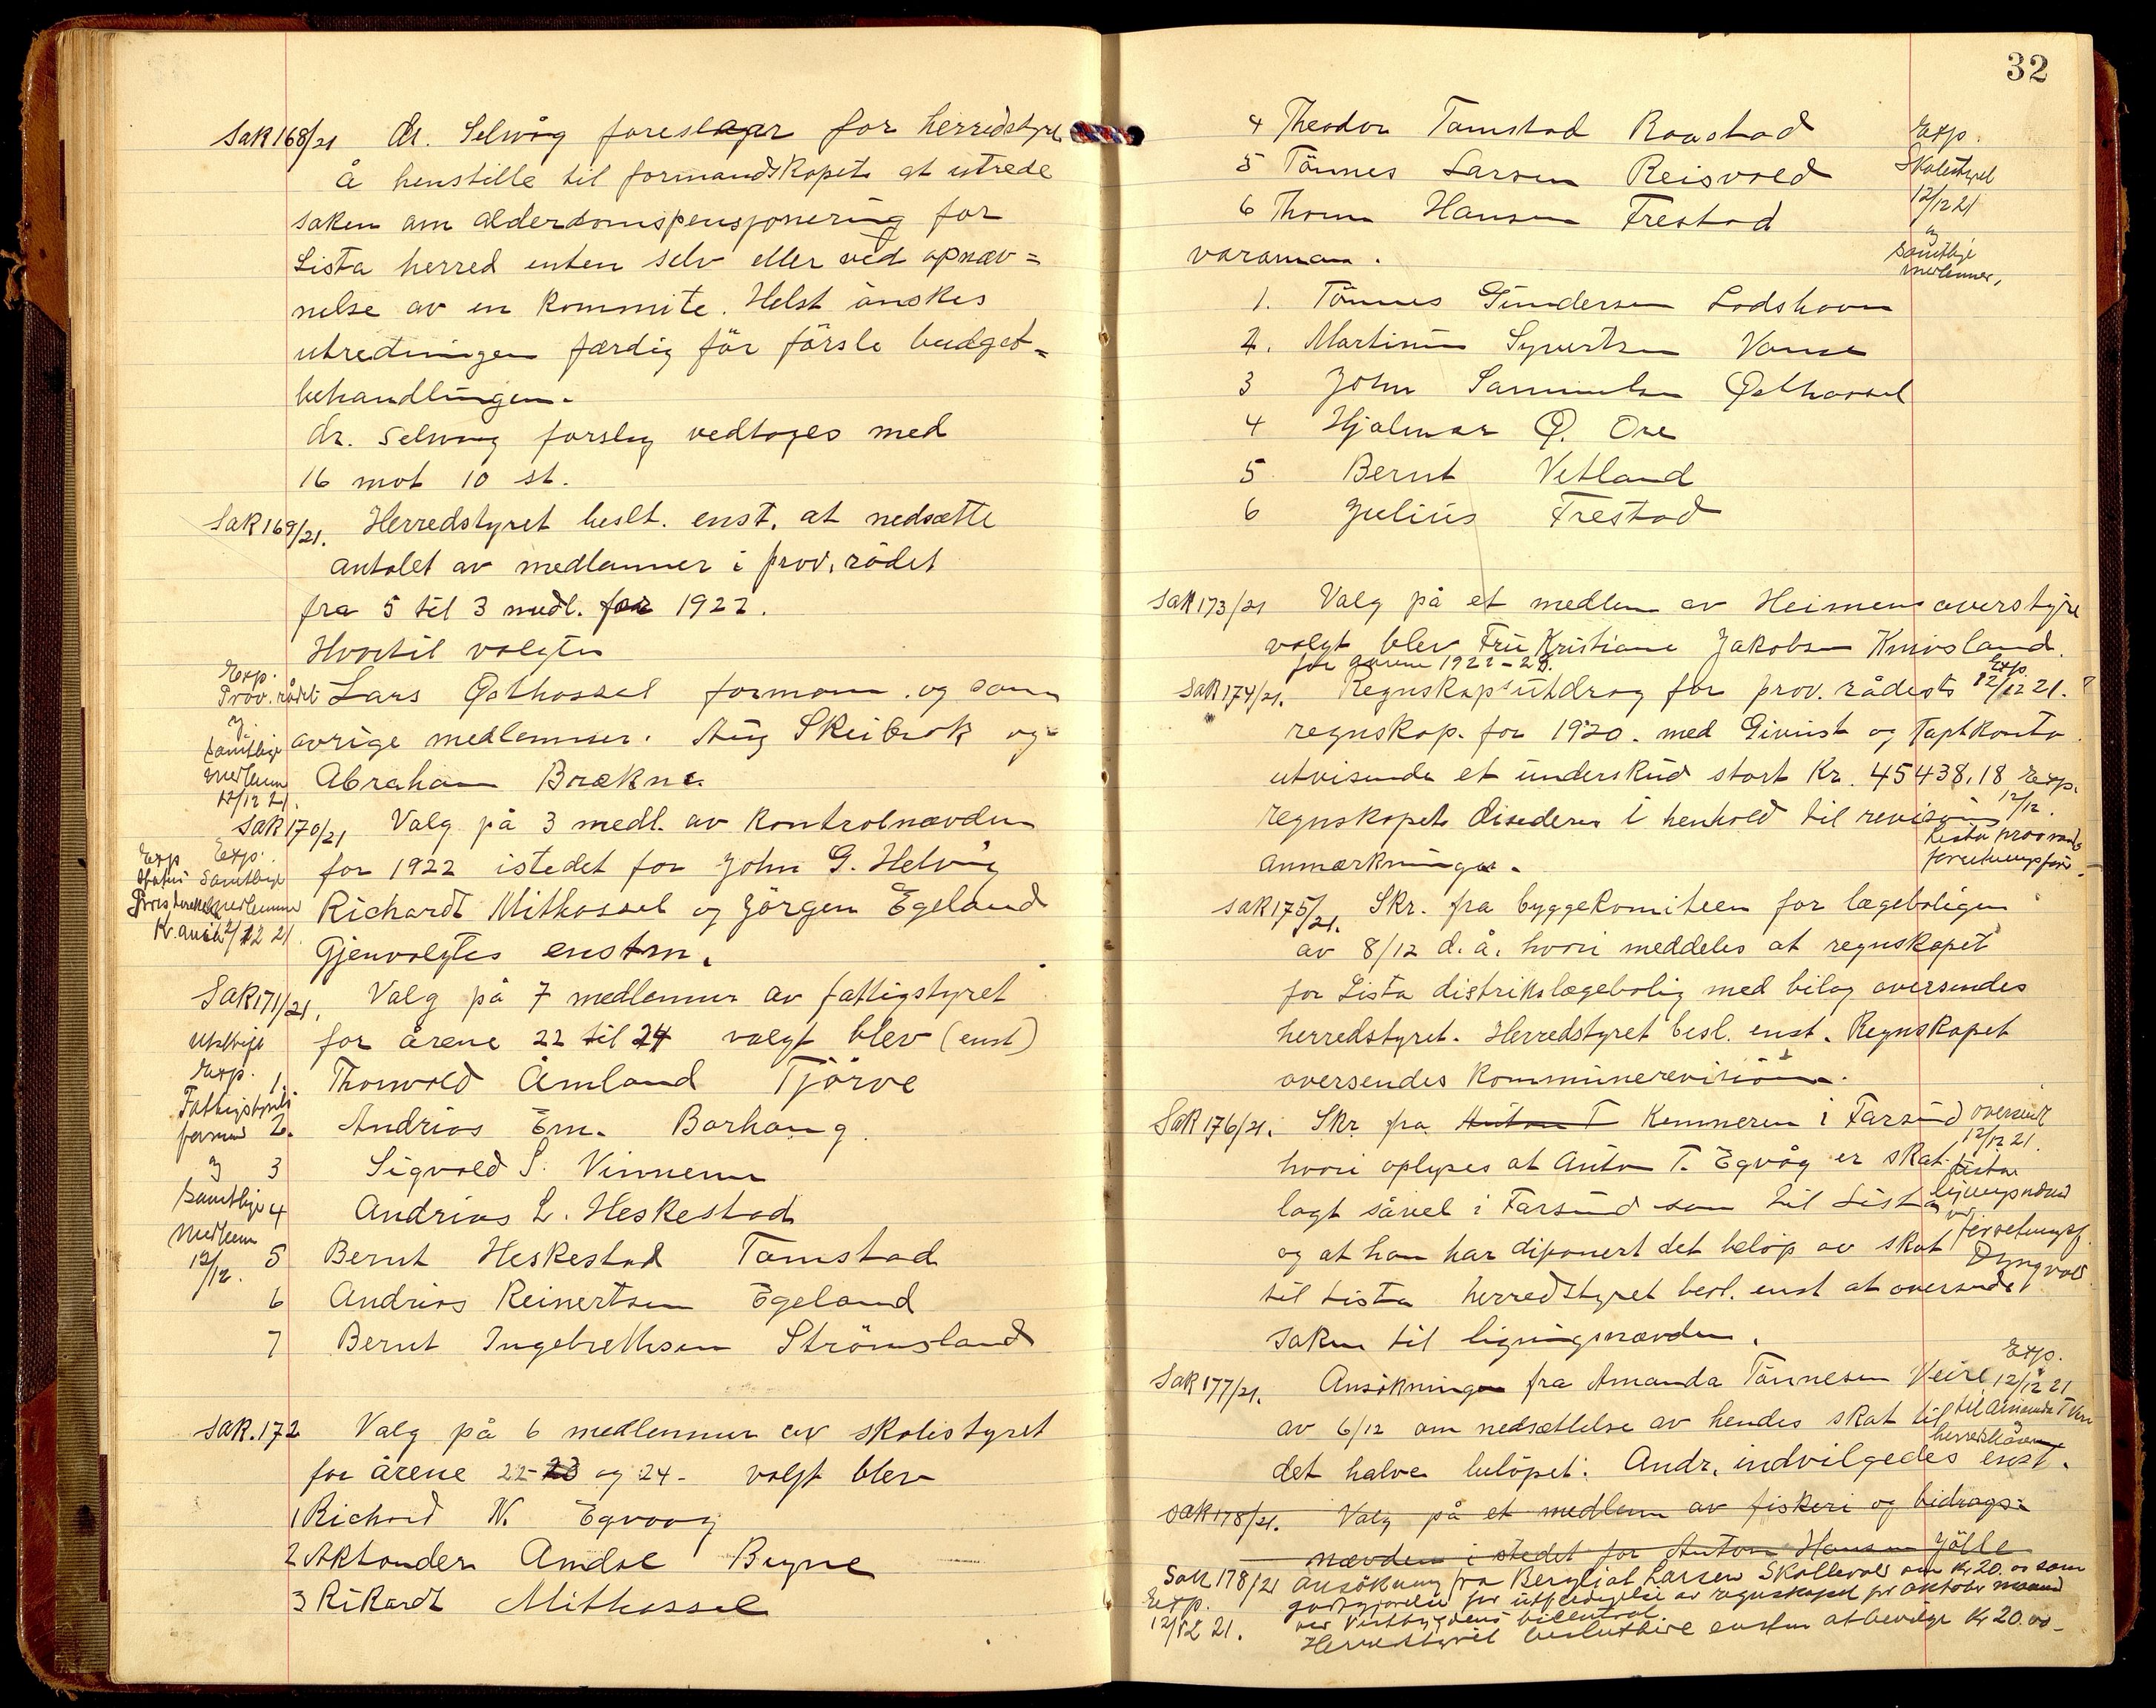 Sak 168/21 dr. Selvåg foreslaar for herredstyre
å henstille til formandskapet at utrede
saken om alderdomspensjonering for
Lista herred enten selv eller ved opnæv=
nelse av en kommite. Helst ønskes
utredningen færdig før første budget=
behandlingen.
dr. Selvaag forslag vedtoges med
16 mot 10 st.
Sak 169/21. Herredstyret beslt. enst. at nedsætte
antalet av medlemmer i prov. rådet
fra 5 til 3 medl. for 1922.
Hvortil valgtes
Exp. Prov. rådet
Lars Østhassel formann og som
og samtlige
øvrige medlemmer. Aug Skeibrok og
medlem 12/12 21.
Abraham Brækne.
Sak 170/21 Valg på 3 medl. av kontrolnævden
Exp. Samtlige medlemmer 12/12 21.
for 1922 istedet for John G. Helvig
Richardt Mithassel og Jörgen Egeland
Gjenvalgtes enstm.
Sak 171/21. Valg på 7 medlemmer av fattigstyret
for årene 22 til 24 valgt blev (enst)
Exp. Fattigstyrets formand og samtlige medlem 12/12.
1. Thorvald Åmland Tjörve
2. Andrias Em. Borhaug
3 Sigvald S. Vinnem
4 Andrias L. Heskestad
5 Bernt Heskestad Tomstad
6 Andrias Reinertsen Egeland
7 Bernt Ingebrethsen Strömsland
Sak. 172 Valg på 6 medlemmer av skolestyret
for årene 22-23 og 24- valgt blev
1 Richard N. Egvaag
2 Aksander Amdal Bryne
3 Rikardt Mithassel
32
4 Theodor Tomstad Raastad
5 Tönnes Larsen Reisvold
6 Thom Hansen Frestad
Exp. Skolestyret 12/12 21 og samtlige medlemmer,
varaman.
1. Tönnes Gundersen Lodshavn
2. Martinius Syvertsen Vanse
3 John Samuelsen Østhassel
4 Hjalmar O. Ore
5 Bernt Vetland
6 Julius Frestad
Sak 173/21 Valg på et medlem av Heimens overstyre
valgt blev Fru Kristiane Jakobsen Knivsland.
for 1922-25.
Exp. 12/12 21.
Sak 174/21. Regnskapsutdrag for prov. rådets
regnskap. for 1920. med Givinst og Taptkonto
utvisende et underskud stort Kr. 45438,18 Exp. 12/12.
regnskapet disideres i henhold til revisions
anmærkninger.
Sak 175/21. Skr. fra byggekomiteen for lægeboligen
av 8/12 d. å. hvori meddeles at regnskapet
for Lista distrikslægebolig med bilag oversendes
herredstyret. Herredstyret besl. enst. Regnskapet
oversendes Kommunerevision.
Sak 176/21. Skr fra Anton T Kemneren i Farsund
oversendt 12/12 21.
hvori oplyses at Anton T. Egvåg er skat-
lagt såvel i Farsund som til Lista
og at han har diponert det beløp av skat
til Lista herredstyret besl. enst at oversende
saken til ligningsnævden.
Sak 177/21. Ansökningen fra Amanda Tönnesen Veire
Exp. 12/12 21
av 6/12 om nedsættelse av hendes skat til
det halve belöpet. Andr. indvilgedes enst.
Sak 178/21. Valg på et medlem av fiskeri og bidrags=
nævden i stedet for Anton Hansen Jölle
Sak 178/21 Ansökning fra Bergljot Larsen Skollevold om Kr 20.00 som
Exp. 12/12 21.
godtgjørelse for utfærdigelse av regnskapet for oktober maaned
ved Vestbygdens
Herredstyret besluttede enstm at bevilge Kr 20.00-